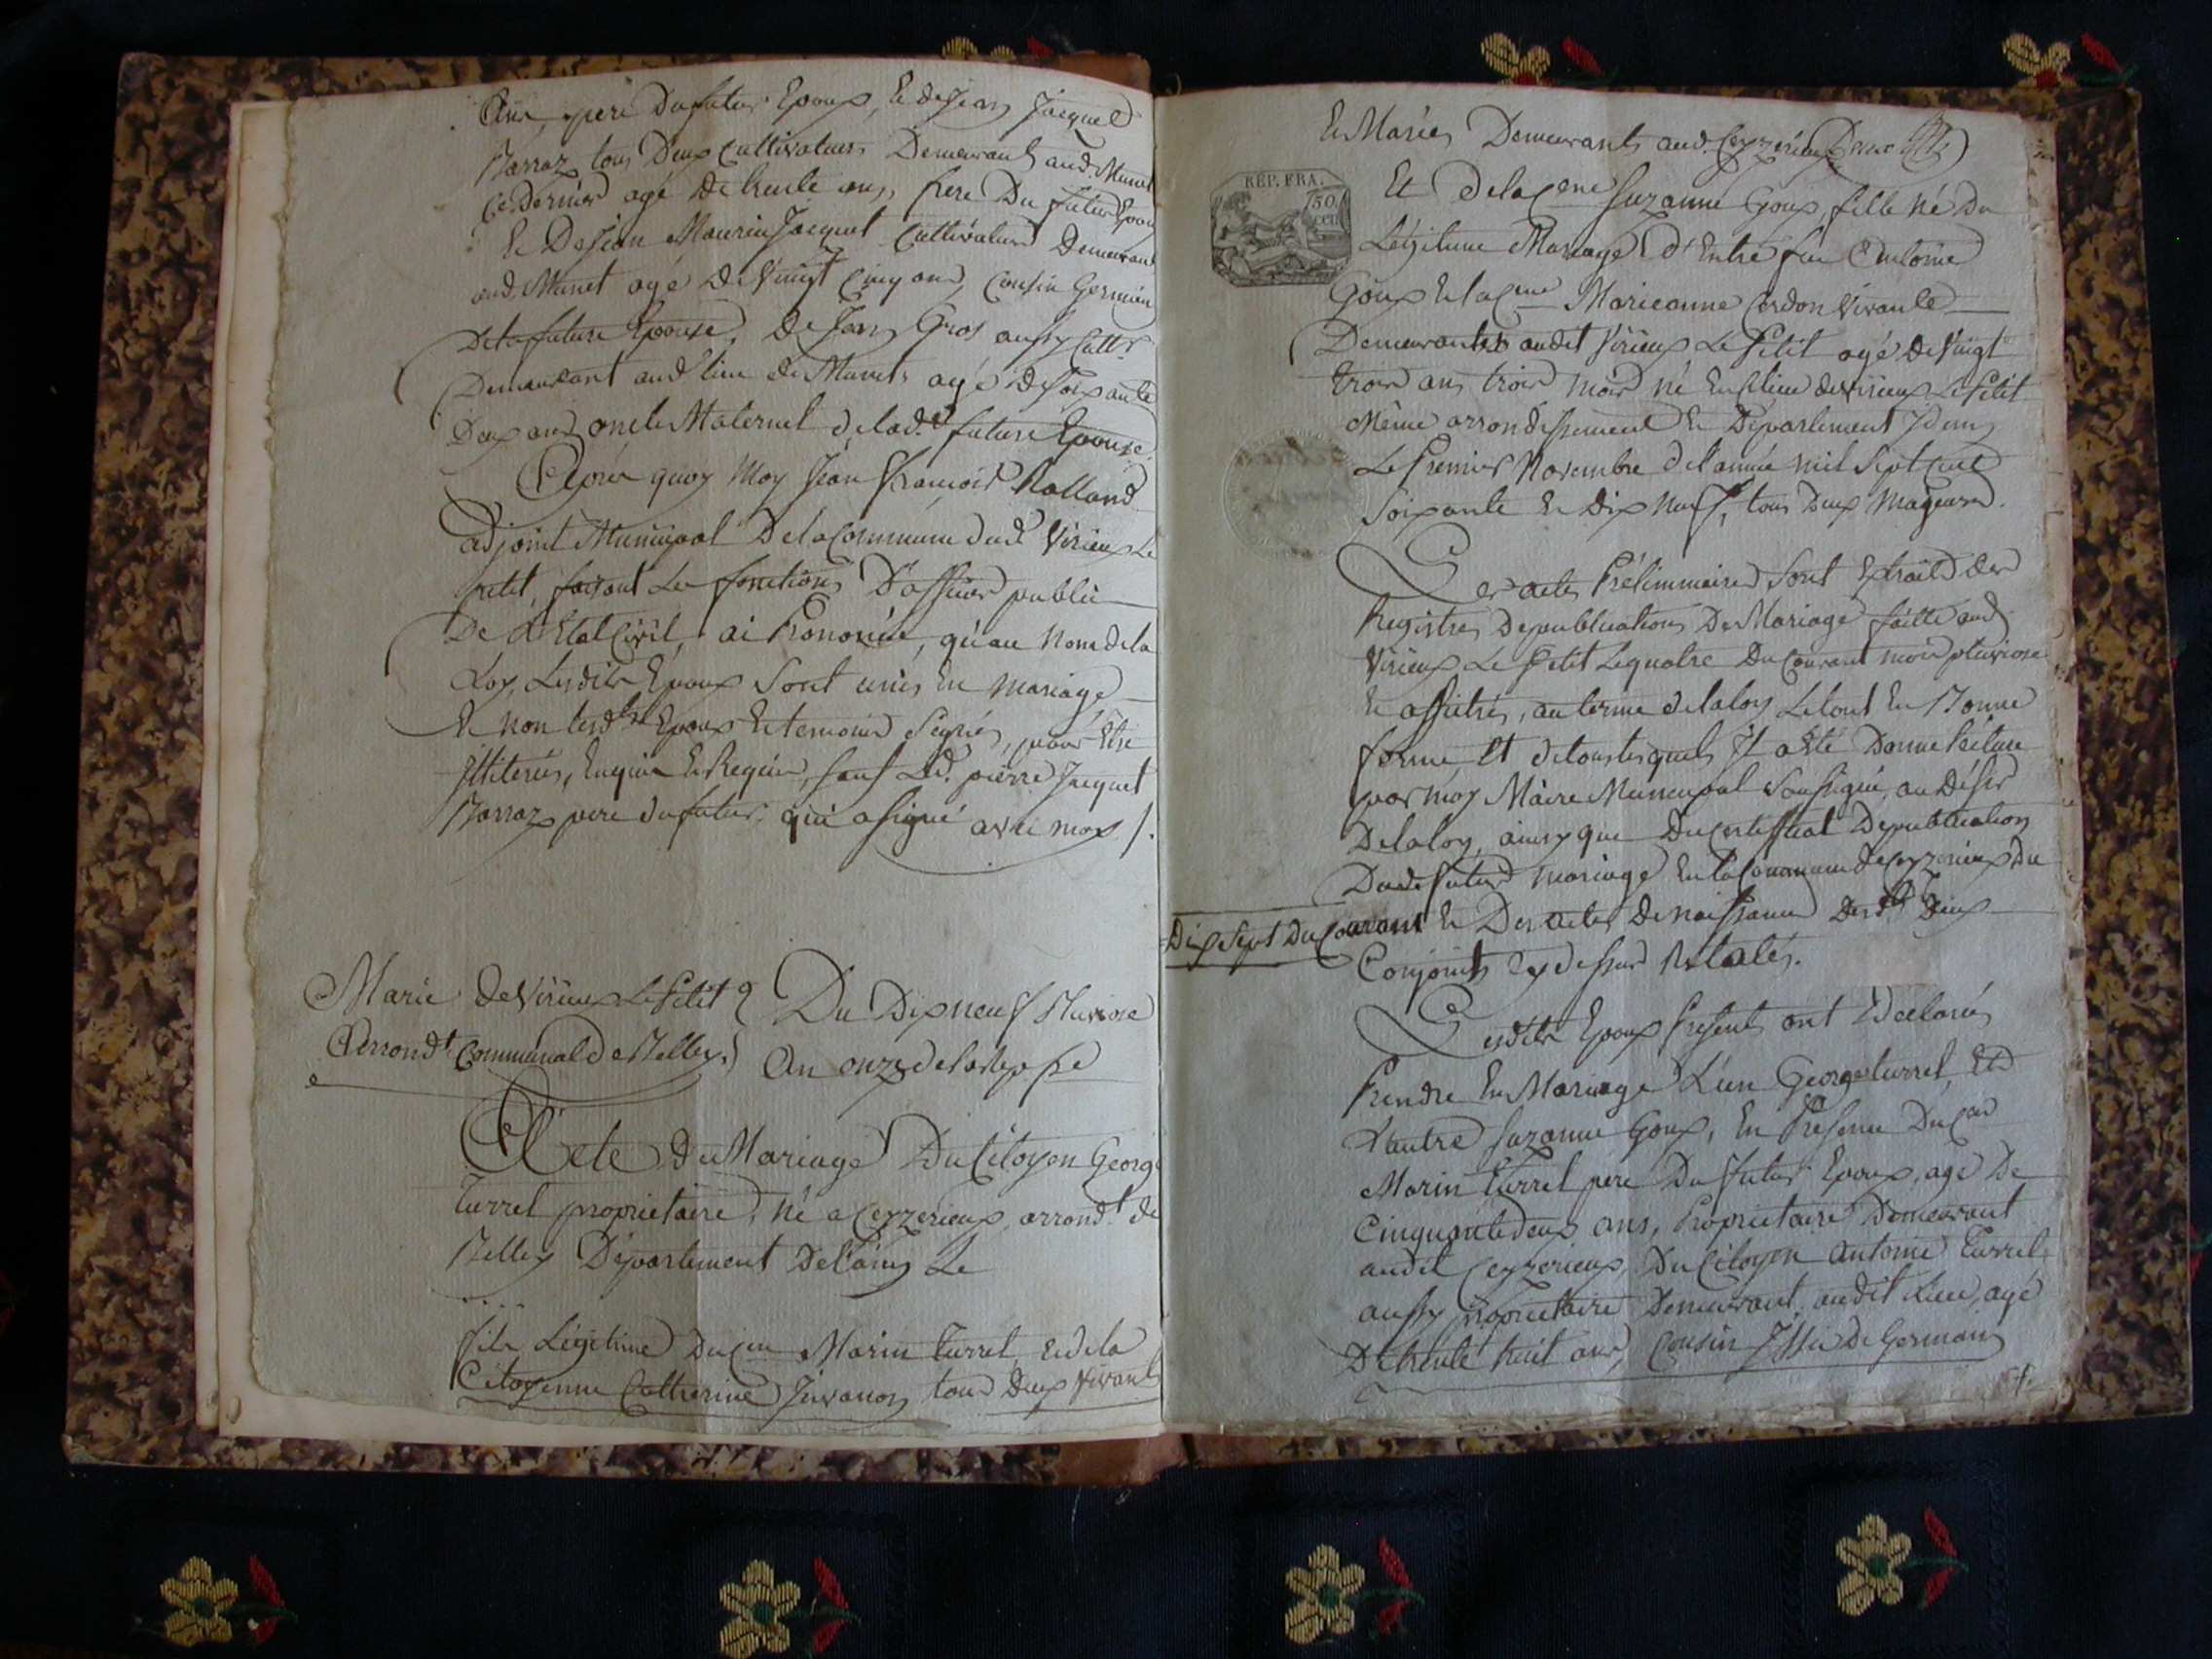 père du futur Epoux, Et de Jean Jacquet
Barraz tous Deux Cultivateurs Demeurants aud. Munet
Ce Dernier agé de trente ans, frere Du futur Epoux
Et De Jean Maurin Jacquet Cultivateur Demeurant
aud. Munet agé De Vingt Cinq ans, Cousin Germain
De la future Epouse, De Jean Gros aussy Cultr
Demeurant aud. lieu de Munet agé de Soixante
Deux ans oncle Maternel de lad.e future Epouse.
Après quoy Moy Jean François Rolland
adjoint Municipal De la Commune dud. Virieux Le
petit, faisant Les fonctions D'officier public
De L'Etat Civil, ai Prononcé, qu'au Nom de la
Loy, Lesdits Epoux Sont unis En mariage
Et non lesdts Epoux Et temoins Signés, pour Etre
Illiterés, Enquis Et Requis, Sauf Led. pierre Jacquet
Barraz pere du futur, qui a signé avec moy /.
Marie de Virieux Le Petit
Arrondt Communal de Belley.
Du Dix neuf Pluviose
An onze de la Rep. fse
Acte du Mariage Du Citoyen George
Turrel proprietaire, né a Ceyzerieux, arrondt. de
Belley Département De L'ain, Le
fils Légitime du Cen Marin Turrel, Et de la
Citoyenne Catherine Juvanon tous deux Vivants
Et Mariés Demeurants aud. Ceyzerieux
REP. FRA.
50
cen
Et De la Cene Suzanne Goux, fille Né Du
Légitime Mariage D'Entre feu Antoine
Goux Et la Cene Marieanne Cordon Vivante
Demeurantes audit Virieux Le Petit agé de Vingt
trois ans trois mois né En Ce lieu de Virieux Le Petit
Même arrondissement Et Département Idem,
Le Premier Novembre de l'année mil Sept Cent
Soixante Et Dix Neuf, tous Deux Mageurs.
Les actes Préliminaires Sont Extraits des
Registres De publications De Mariage faitte aud.
Virieux Le Petit Le quatre Du Courant mois pluviose
Et affichés, au terme de la loy Le tout En Bonne
forme Et de tous lesquels Il a Eté Donné Lecture
par moy Maire Municipal Soussigné, au Désir
De la loy, ainsy que Du Certificat De publication
Dud. futur mariage En la Commune de Ceyzerieux Du
Dix Sept Du Courant Et Des actes De naissance Desdts Deux
Conjoints Cy dessus Relatés.
Lesdits Epoux Présents ont Déclarés
Prendre En Mariage L'un George turrel, Et
L'autre Suzanne Goux, En Présence Du Cen
Marin Turrel père Du futur Epoux, agé De
Cinquante deux ans, Proprietaire Demeurant
audit Ceyzerieux, Du Citoyen Antoine Turrel
aussy Proprietaire Demeurant audit Lieu, agé
De trente huit ans, Cousin Issu de Germain